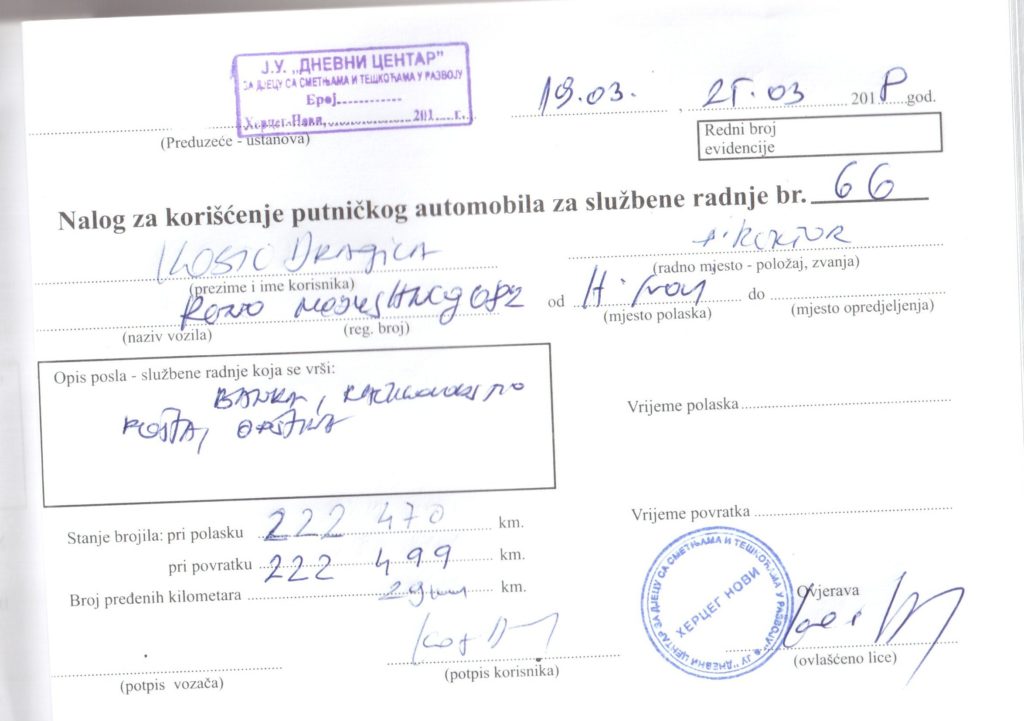 Ј.У. „ДНЕВНИ ЦЕНТАР"
ЗА ДЈЕЦУ СА СМЕТЊАМА И ТЕШКОЋАМА У РАЗВОЈУ
Број............
Херцег-Нови,....................201.... г.
19.03. , 25.03 2018 god.
(Preduzeće - ustanova)
Redni broj
evidencije
Nalog za korišćenje putničkog automobila za službene radnje br. 66
KOSIĆ DRAGICA
(prezime i ime korisnika)
(radno mjesto - položaj, zvanja)
HNCG082 od H. Novi do
(naziv vozila) (reg. broj) (mjesto polaska) (mjesto opredjeljenja)
Opis posla - službene radnje koja se vrši:
BANKA, RAČUNOVODSTVO
POŠTA, OPŠTINA
Vrijeme polaska
Stanje brojila: pri polasku 222 470 km.
Vrijeme povratka
pri povratku 222 499 km.
Broj pređenih kilometara 29 km km.
ЈУ "ДНЕВНИ ЦЕНТАР ЗА ДЈЕЦУ СА СМЕТЊАМА И ТЕШКОЋАМА У РАЗВОЈУ"
ХЕРЦЕГ НОВИ
Ovjerava
(potpis vozača) (potpis korisnika) (ovlašćeno lice)